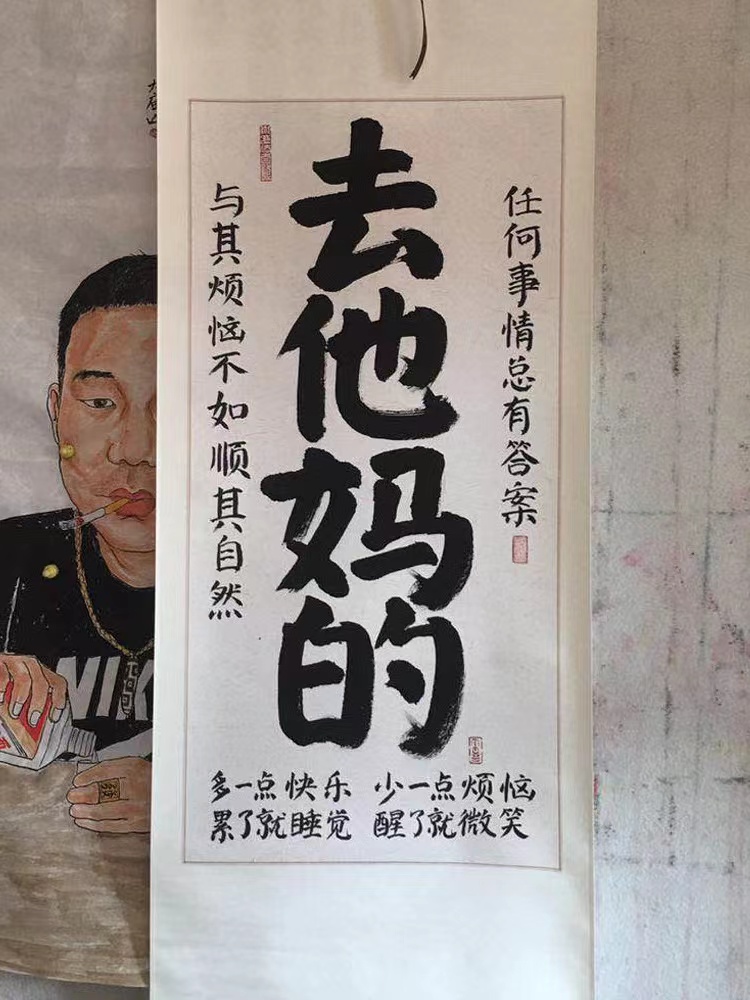 任何事情总有答案
去他妈的
与其烦恼不如顺其自然
多一点快乐 少一点烦恼
累了就睡觉 醒了就微笑
NIK